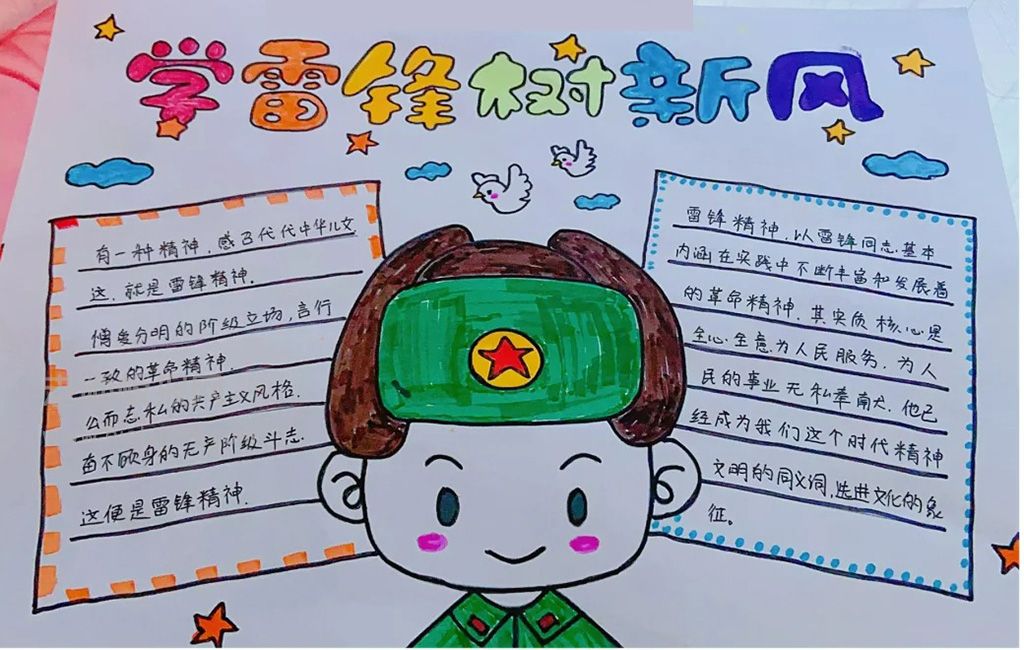 学雷锋树新风
有一种精神，感召代代中华儿女
这，就是雷锋精神.
憎爱分明的阶级立场，言行
一致的革命精神.
公而忘私的共产主义风格.
奋不顾身的无产阶级斗志.
这便是雷锋精神.
雷锋精神，以雷锋同志基本
内涵在实践中不断丰富和发展着
的革命精神，其实质核心是
全心全意为人民服务，为人
民的事业无私奉献犬，他已
经成为我们这个时代精神
文明的同义词，先进文化的象
征。